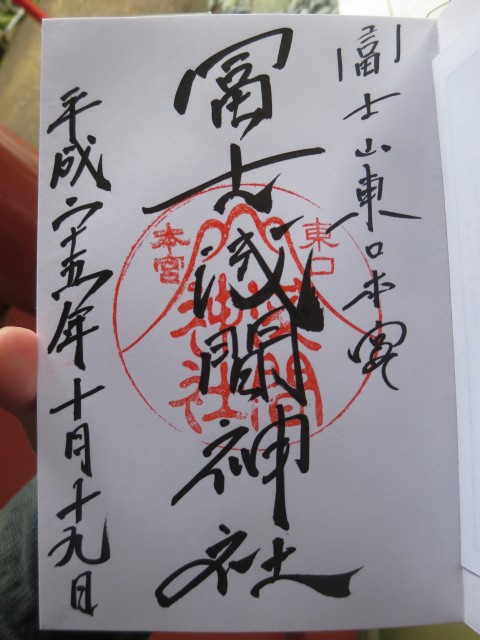 冨士山東口本宮
冨士浅間神社
平成二十五年十月十九日
東口
本宮
浅間
神社